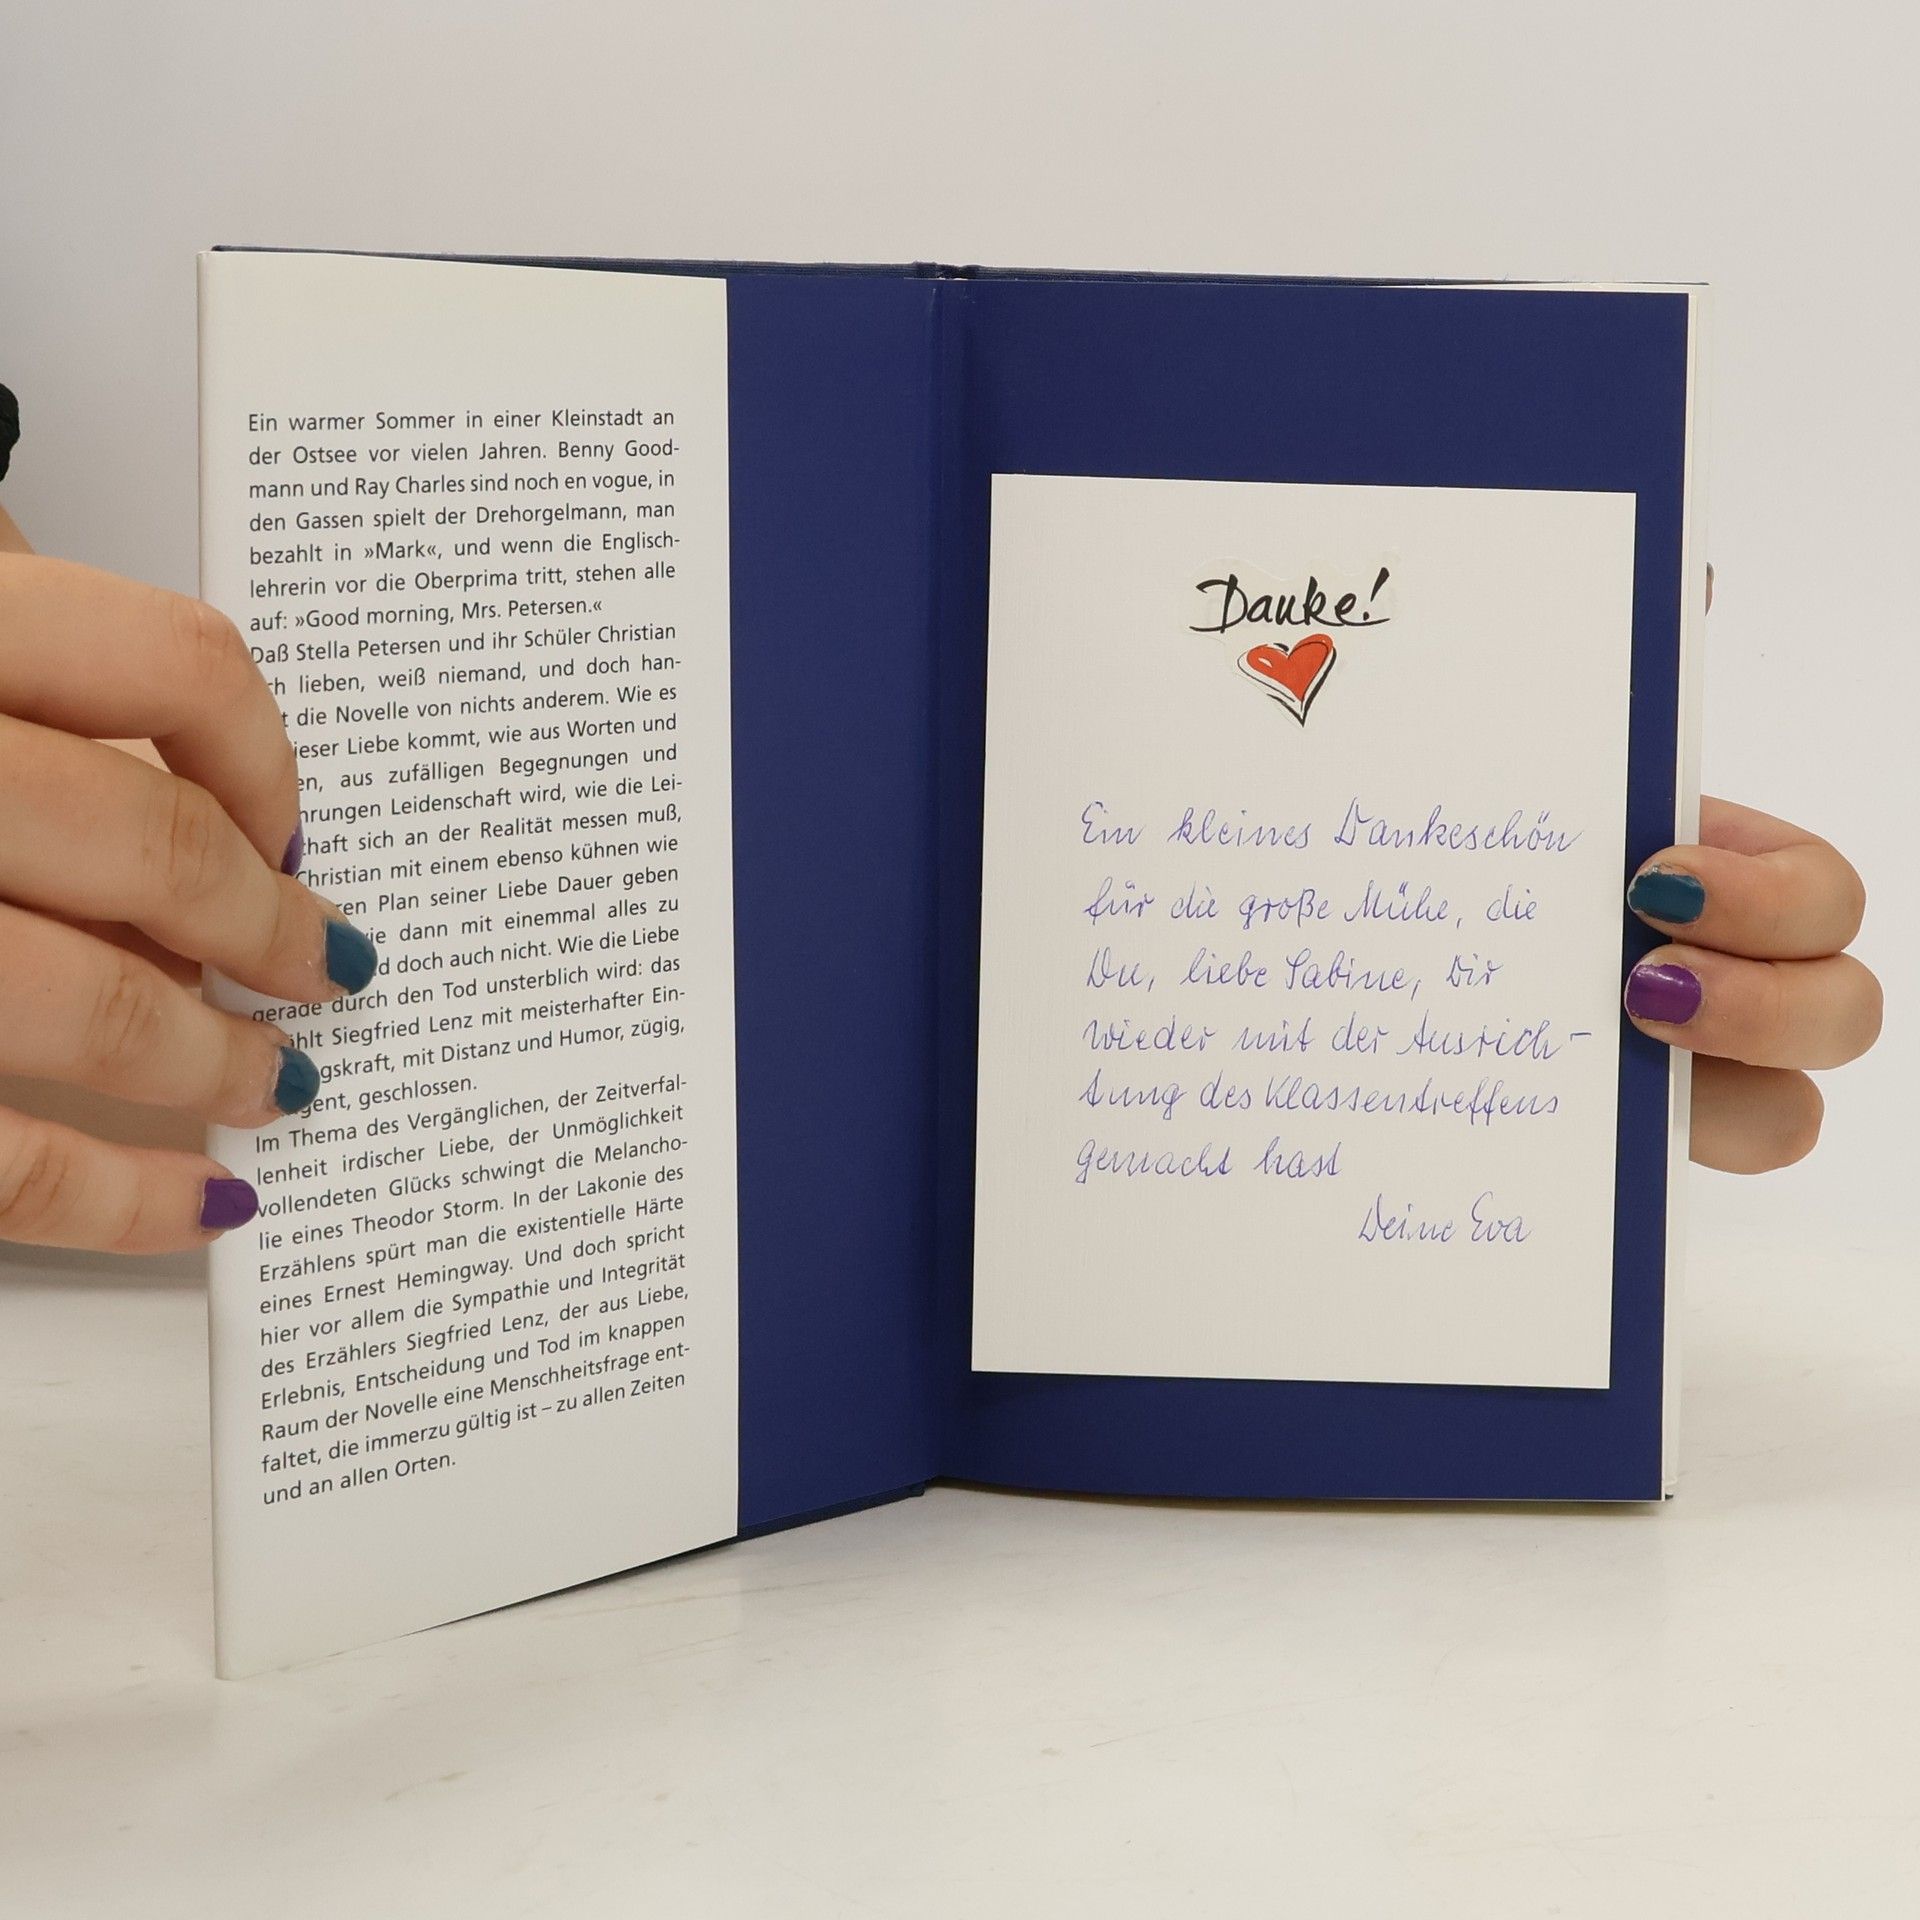 Ein warmer Sommer in einer Kleinstadt an
der Ostsee vor vielen Jahren. Benny Good-
mann und Ray Charles sind noch en vogue, in
den Gassen spielt der Drehorgelmann, man
bezahlt in »Mark«, und wenn die Englisch-
lehrerin vor die Oberprima tritt, stehen alle
auf: »Good morning, Mrs. Petersen.«
Daß Stella Petersen und ihr Schüler Christian
lieben, weiß niemand, und doch han-
die Novelle von nichts anderem. Wie es
Liebe kommt, wie aus Worten und
aus zufälligen Begegnungen und
Leidenschaft wird, wie die Lei-
sich an der Realität messen muß,
Christian mit einem ebenso kühnen wie
Plan seiner Liebe Dauer geben
dann mit einemmal alles zu
doch auch nicht. Wie die Liebe
gerade durch den Tod unsterblich wird: das
Siegfried Lenz mit meisterhafter Ein-
mit Distanz und Humor, zügig,
geschlossen.
Im Thema des Vergänglichen, der Zeitverfal-
lenheit irdischer Liebe, der Unmöglichkeit
vollendeten Glücks schwingt die Melancho-
lie eines Theodor Storm. In der Lakonie des
Erzählens spürt man die existentielle Härte
eines Ernest Hemingway. Und doch spricht
hier vor allem die Sympathie und Integrität
des Erzählers Siegfried Lenz, der aus Liebe,
Erlebnis, Entscheidung und Tod im knappen
Raum der Novelle eine Menschheitsfrage ent-
faltet, die immerzu gültig ist – zu allen Zeiten
und an allen Orten.
Danke!
Ein kleines Dankeschön
für die große Mühe, die
Du, liebe Sabine, Dir
wieder mit der Ausrich-
tung des Klassentreffens
gemacht hast
Deine Eva